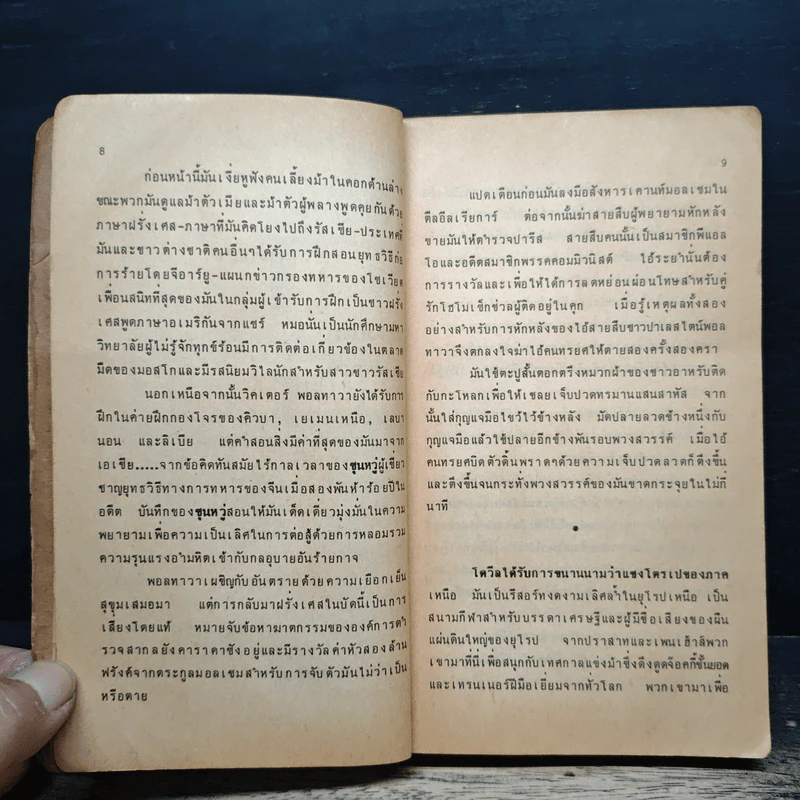 8
ก่อนหน้านี้มันเงี่ยหูฟังคนเลี้ยงม้าในคอกด้านล่าง
ขณะพวกมันดูแลม้าตัวเมียและม้าตัวผู้พลางพูดคุยกันด้วย
ภาษาฝรั่งเศส-ภาษาที่มันคิดโยงไปถึงรัสเซีย-ประเทศที่
มันและชาวต่างชาติคนอื่นๆได้รับการฝึกสอนยุทธวิธีก่อ
การร้ายโดยจีอาร์ยู-แผนกข่าวกรองทหารของโซเวียต
เพื่อนสนิทที่สุดของมันในกลุ่มผู้เข้ารับการฝึกเป็นชาวฝรั่ง
เศสพูดภาษาอเมริกันจากแซร์ หมอนั่นเป็นนักศึกษามหา
วิทยาลัยผู้ไม่รู้จักทุกข์ร้อนมีการติดต่อเกี่ยวข้องในตลาด
มืดของมอสโกและมีรสนิยมวิไลนักสำหรับสาวชาวรัสเซีย
นอกเหนือจากนั้นวิคเตอร์ พอลทาวายังได้รับการ
ฝึกในค่ายฝึกกองโจรของคิวบา, เยเมนเหนือ, เลบา
นอน และลิเบีย แต่คำสอนสิ่งมีค่าที่สุดของมันมาจาก
เอเซีย.....จากข้อคิดทันสมัยไร้กาลเวลาของซุนหวู่ผู้เชี่ยว
ชาญยุทธวิธีทางการทหารของจีนเมื่อสองพันห้าร้อยปีใน
อดีต บันทึกของซุนหวู่สอนให้มันเด็ดเดี่ยวมุ่งมั่นในความ
พยายามเพื่อความเป็นเลิศในการต่อสู้ด้วยการหลอมรวม
ความรุนแรงอำมหิตเข้ากับกลอุบายอันร้ายกาจ
พอลทาวาเผชิญกับอันตรายด้วยความเยือกเย็น
สุขุมเสมอมา แต่การกลับมาฝรั่งเศสในบัดนี้เป็นการ
เสี่ยงโดยแท้ หมายจับข้อหาฆาตกรรมขององค์การตำ
รวจสากลยังคาราคาซังอยู่และมีรางวัลค่าหัวสองล้าน
ฟรังค์จากตระกูลมอลเซมสำหรับการจับตัวมันไม่ว่าเป็น
หรือตาย
9
แปดเดือนก่อนมันลงมือสังหารเคานท์มอลเซมใน
ตีลอีลเรียการ์ ต่อจากนั้นฆ่าสายสืบผู้พยายามหักหลัง
ขายมันให้ตำรวจปารีส สายสืบคนนั้นเป็นสมาชิกพีแอล
โอและอดีตสมาชิกพรรคคอมมิวนิสต์ ไอ้ระยำนั่นต้อง
การรางวัลและเพื่อให้ได้การลดหย่อนผ่อนโทษสำหรับคู่
รักโฮโมเซ็กช่วลผู้ติดอยู่ในคุก เมื่อรู้เหตุผลทั้งสอง
อย่างสำหรับการหักหลังของไอ้สายสืบชาวปาเลสไตน์พอล
ทาวาจึงตกลงใจฆ่าไอ้คนทรยศให้ตายสองครั้งสองครา
มันใช้ตะปูสั้นตอกตรึงหมวกผ้าของชาวอาหรับติด
กับกะโหลกเพื่อให้เชลยเจ็บปวดทรมานแสนสาหัส จาก
นั้นใส่กุญแจมือไขว้ไว้ข้างหลัง มัดปลายลวดข้างหนึ่งกับ
กุญแจมือแล้วใช้ปลายอีกข้างพันรอบพวงสวรรค์ เมื่อไอ้
คนทรยศบิดตัวดิ้นพราดๆด้วยความเจ็บปวดลวดก็ตึงขึ้น
และตึงขึ้นจนกระทั่งพวงสวรรค์ของมันขาดกระจุยในไม่กี่
นาที
•
โดวีลได้รับการขนานนามว่าแซงโตรเปของภาค
เหนือ มันเป็นรีสอร์ทงดงามเลิศล้ำในยุโรปเหนือ เป็น
สนามกีฬาสำหรับบรรดาเศรษฐีและผู้มีชื่อเสียงของผืน
แผ่นดินใหญ่ของยุโรป จากปราสาทและเพนเฮ้าส์พวก
เขามาที่นี่เพื่อสนุกกับเทศกาลแข่งม้าซึ่งดึงดูดจ็อคกี้ชั้นยอด
และเทรนเนอร์ฝีมือเยี่ยมจากทั่วโลก พวกเขามาเพื่อ